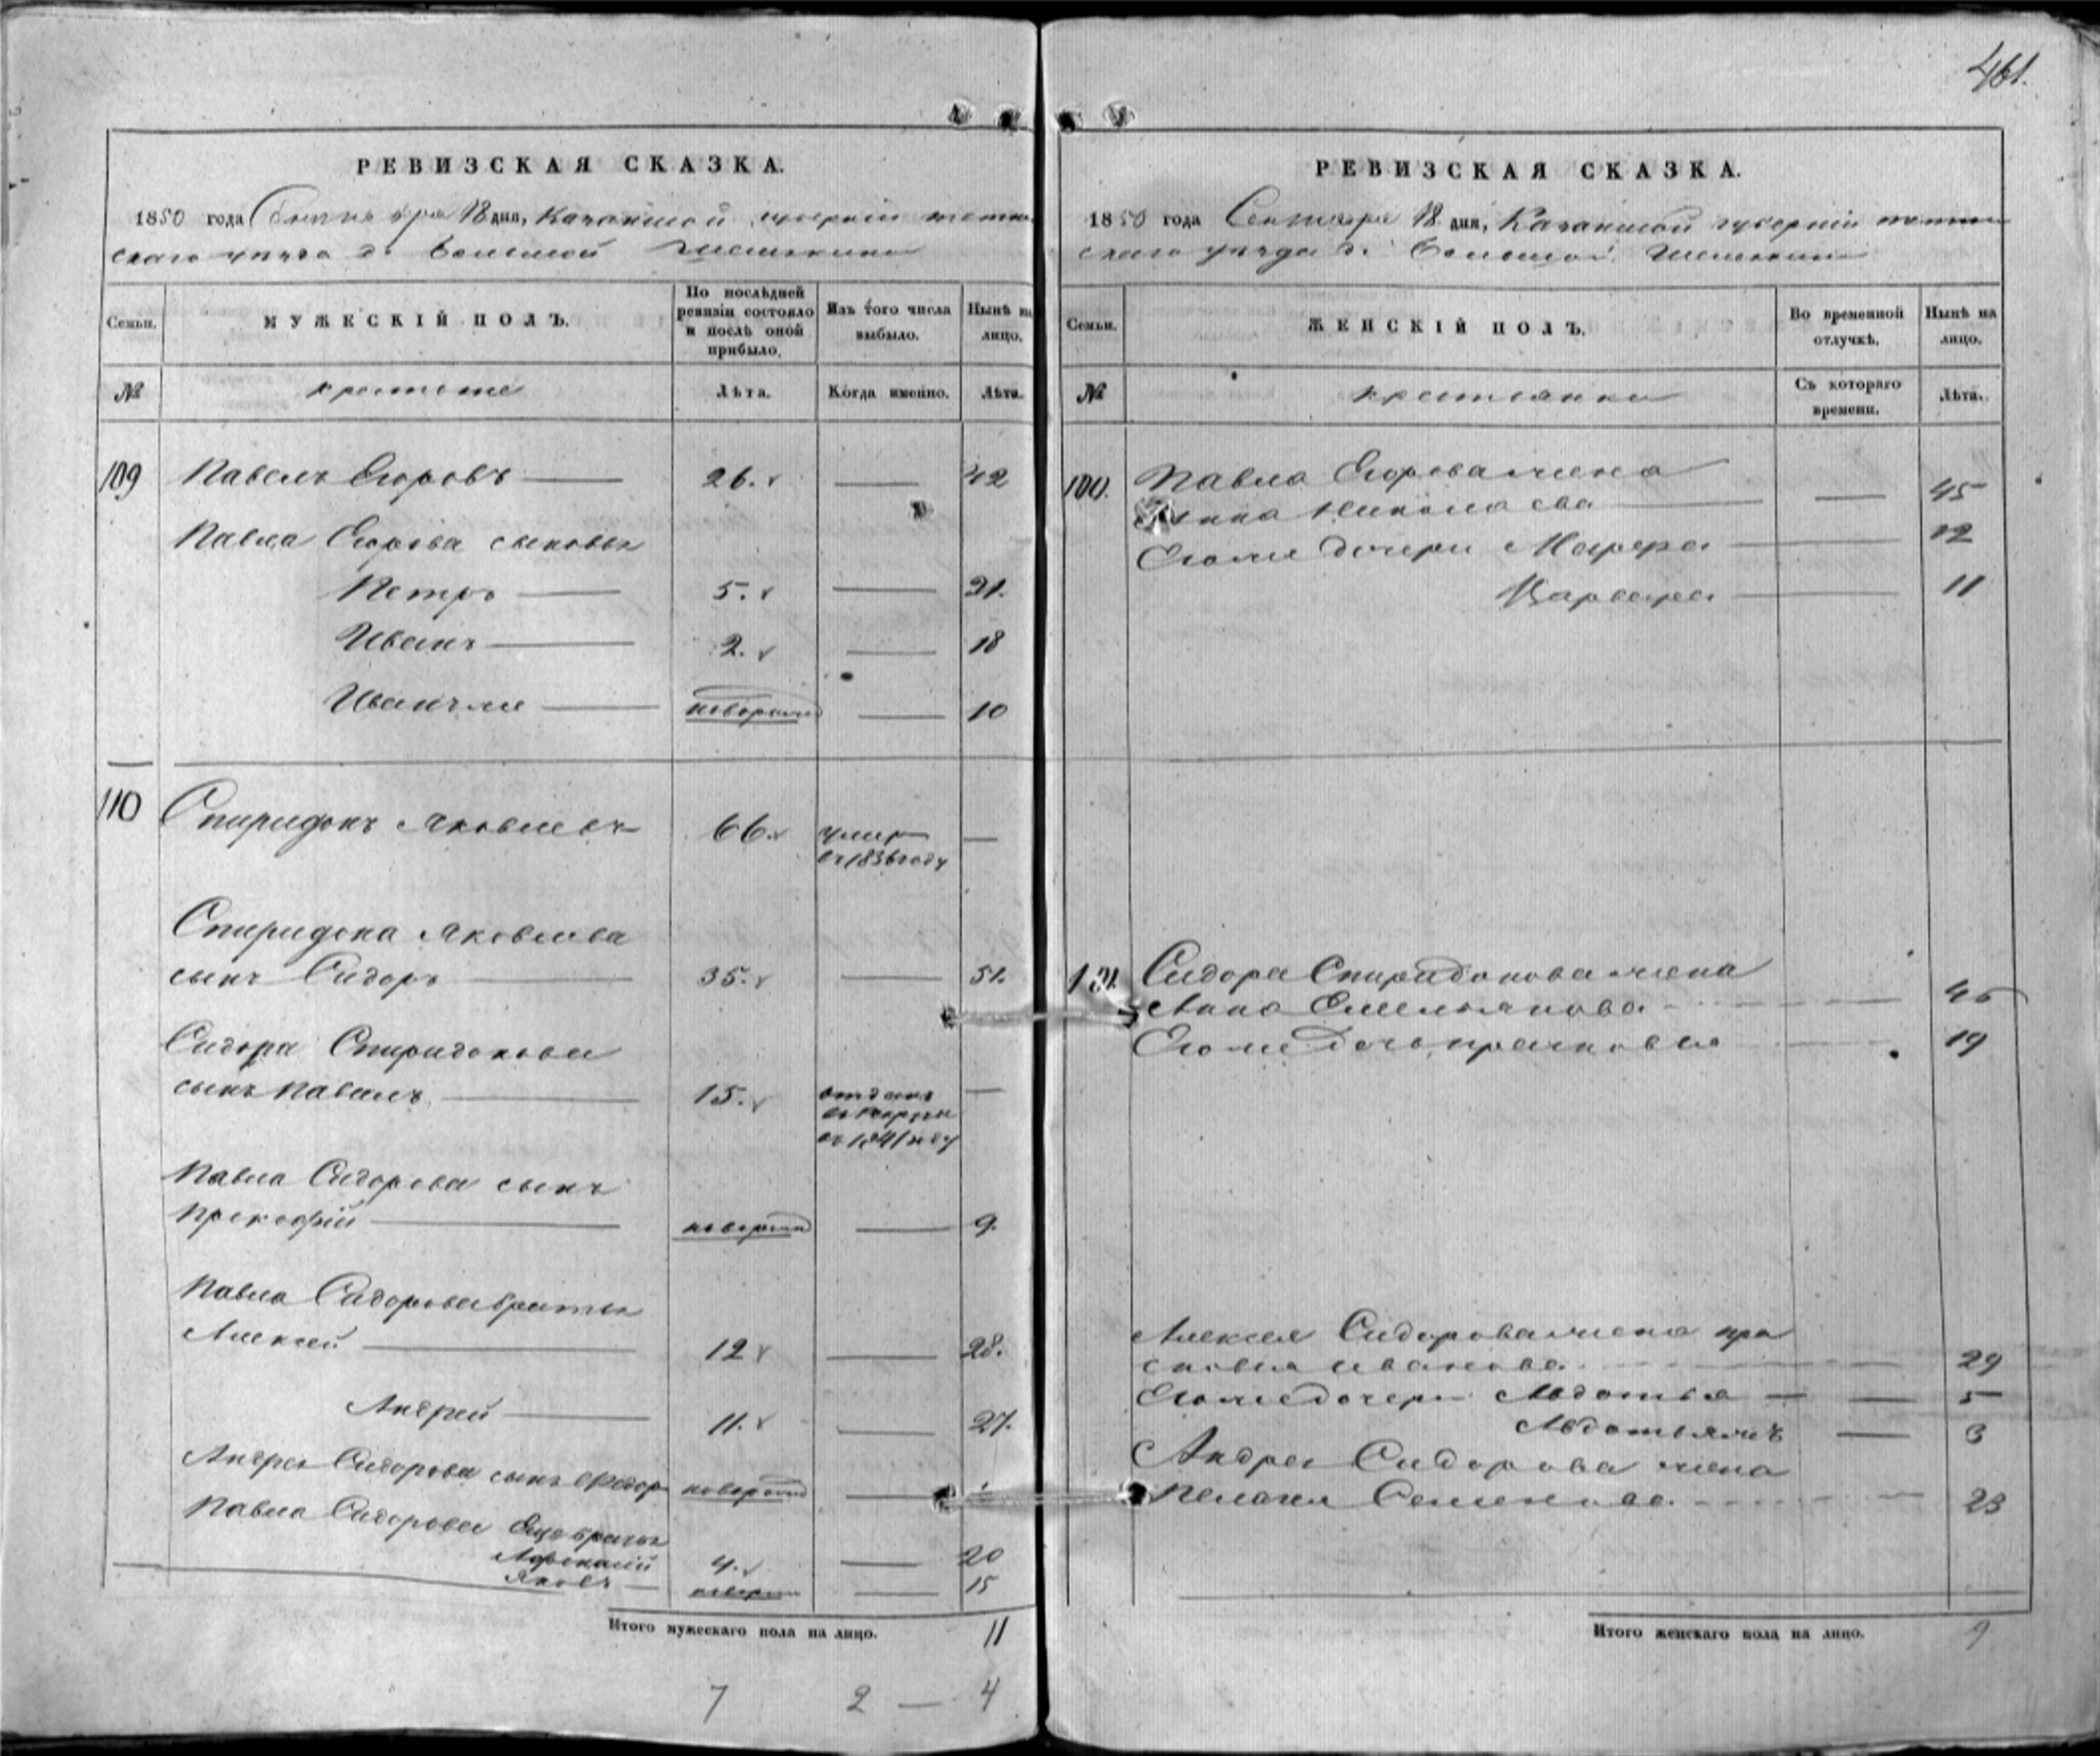 461.
РЕВИЗСКАЯ СКАЗКА.
1850 года Сентября 18 дня, Казанской губерніи тетю
скаго уѣзда д. Большой
СЕМЬИ. МУЖЕСКІЙ ПОЛЪ. По послѣдней ревизіи состояло и послѣ оной прибыло. Изъ того числа выбыло. Нынѣ на лицо.
№ крестьяне Лѣта. Когда именно. Лѣта.
109 Павелъ Егоровъ 26. 42
Павла Егорова сыновья
Петръ 5. 21.
Иванъ 2. 18
Иванъ же новорожд 10
110 Спиридонъ Яковлевъ 66. умер
въ 1836 году
Спиридона Яковлева
сынъ Сидоръ 35. 51.
Сидора Спиридонова
сынъ Павелъ 15. отданъ
въ рекруты
въ 1841 году
Павла Сидорова сынъ
Прокофій новорожд 9.
Павла Сидорова братья
Алексей 12 28.
Андрей 11. 27.
Андрея Сидорова сынъ Федор новорожд
Павла Сидорова Еще братья
4. 20
Яковъ новорож 15
Итого мужескаго пола на лицо. 11
7 2 — 4
РЕВИЗСКАЯ СКАЗКА.
1850 года Сентября 18 дня, Казанской губерніи тетю
скаго уѣзда д. Большой
Семьи. ЖЕНСКІЙ ПОЛЪ. Во временной отлучкѣ. Нынѣ на лицо.
№ крестьянки Съ котораго времени. Лѣта.
Павла Егорова жена
Анна Николаева 45
Егоже дочери Марфа 12
Варвара 11
Сидора Спиридонова жена
Анна Емельянова 45
Егоже дочь 19
Алексея Сидорова жена Пра
сковья Иванова 29
Егоже дочери Авдотья 5
Авдотья же 3
Андрея Сидорова жена
Пелагея Семенова 23
Итого женскаго пола на лицо. 9